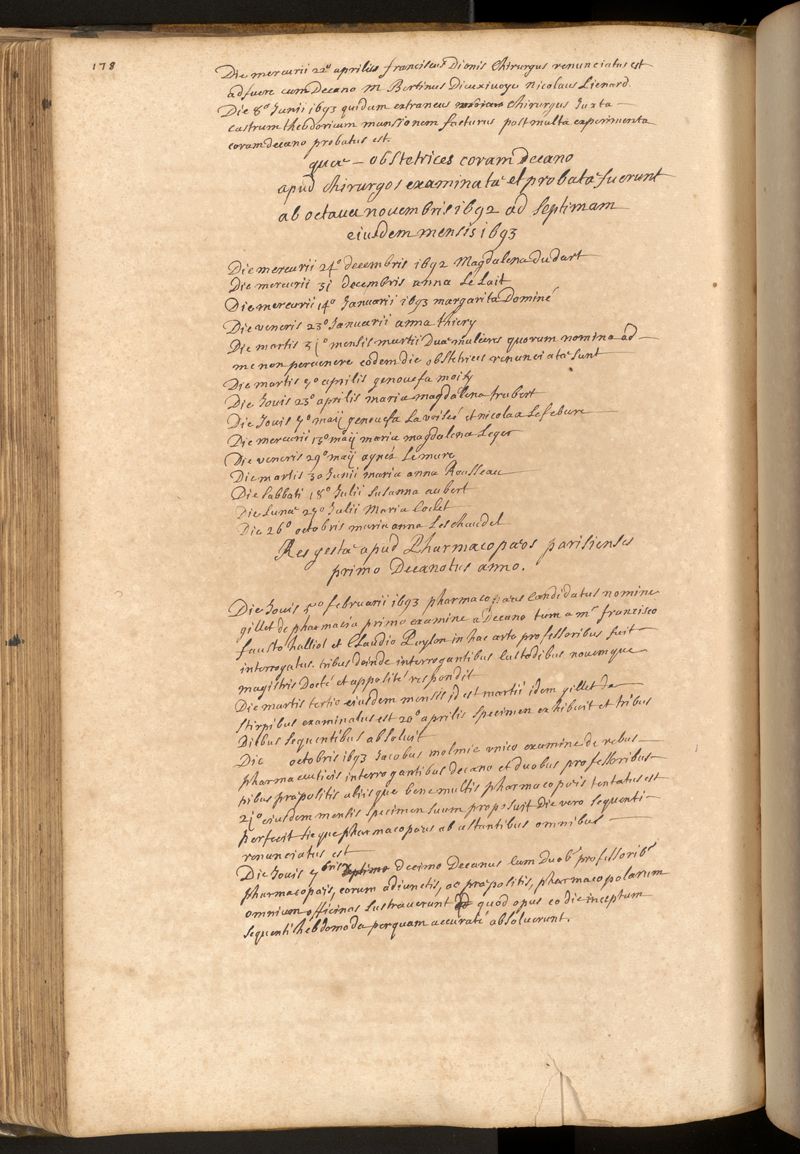 178
Die mercurii 22a aprilis franciscus Dionis Chirurgus renunciatus est
adfuere cum Decano M Bertinus Dieuxivoye Nicolaus Lienard.
Die 8o Junii 1693 quidam extraneus Chirurgus Juxta
castrum theodoricum mansionem facturus post multa experimenta
coram decano probatus est.
quae obstetrices coram decano
apud chirurgos examinatae et probatae fuerunt
ab octava novembris 1692 ad septimam
eiusdem mensis 1693
Die mercurii 24o decembris 1692 Magdalena dudart
Die mercurii 31 decembris anna Le Lait
Die mercurii 14o Januarii 1693 margarita Dominé
Die veneris 23o Januarii anna thiery
Die martis 31o mensis martii Duae mulieres quorum nomina ad
me non pervenere eodem die obstetrices renunciatae sunt
Die martis 7o aprilis genovefa moity
Die Jouis 23o aprilis maria magdalena trubert
Die Jouis 7o maij genovefa La voiseé et nicolaa Lefebure
Die mercurii 13o maij maria magdalena Leger
Die veneris 29o maij agnés Lemure
Die martis 30 Junii maria anna Rousseau
Die sabbati 18o Julii susanna aubert
Die Lunae 27o Julii Maria Coclet
Die 26o octobris maria anna Leschaudel
Res gestae apud Pharmacopaeos parisienses
primo Decanatus anno.
Die Jouis 5o februarii 1693 pharmacopaeus Candidatus nomine
gillet de pharmacia primo examine a Decano tum a mro francisco
fausto halliot et Claudio Puylon in hac arte professoribus fuit
interrogatus. tribus deinde interrogantibus Custodibus novemque
magistris Docté et appositè respondit
Die martis tertio eiusdem mensis id est martii idem gillet de
stirpibus examinatus est 20o aprilis specimen exhibuit et tribus
Diebus sequentibus absoluit
Die octobris 1693 Jacobus molmie vnico examine de rebus
pharmaceuticis interrogantibus decano et duobus professoribus
tribus praepositis aliisque bene multis pharmacopaeis tentatus est
21o eiusdem mensis specimen suum proposuit Die vero sequenti
perfecit sicque pharmacopaeus ab astantibus omnibus
renunciatus est
Die Jouis 7bris decimo Decanus Cum Duob9 professorib9
pharmacopaeis, eorum adiunctis, ac praepositis, pharmacopolarum
omnium officinas Lustraverunt quod opus eo die inceptum
sequenti hebdomada perquam accuraté absoluerunt.